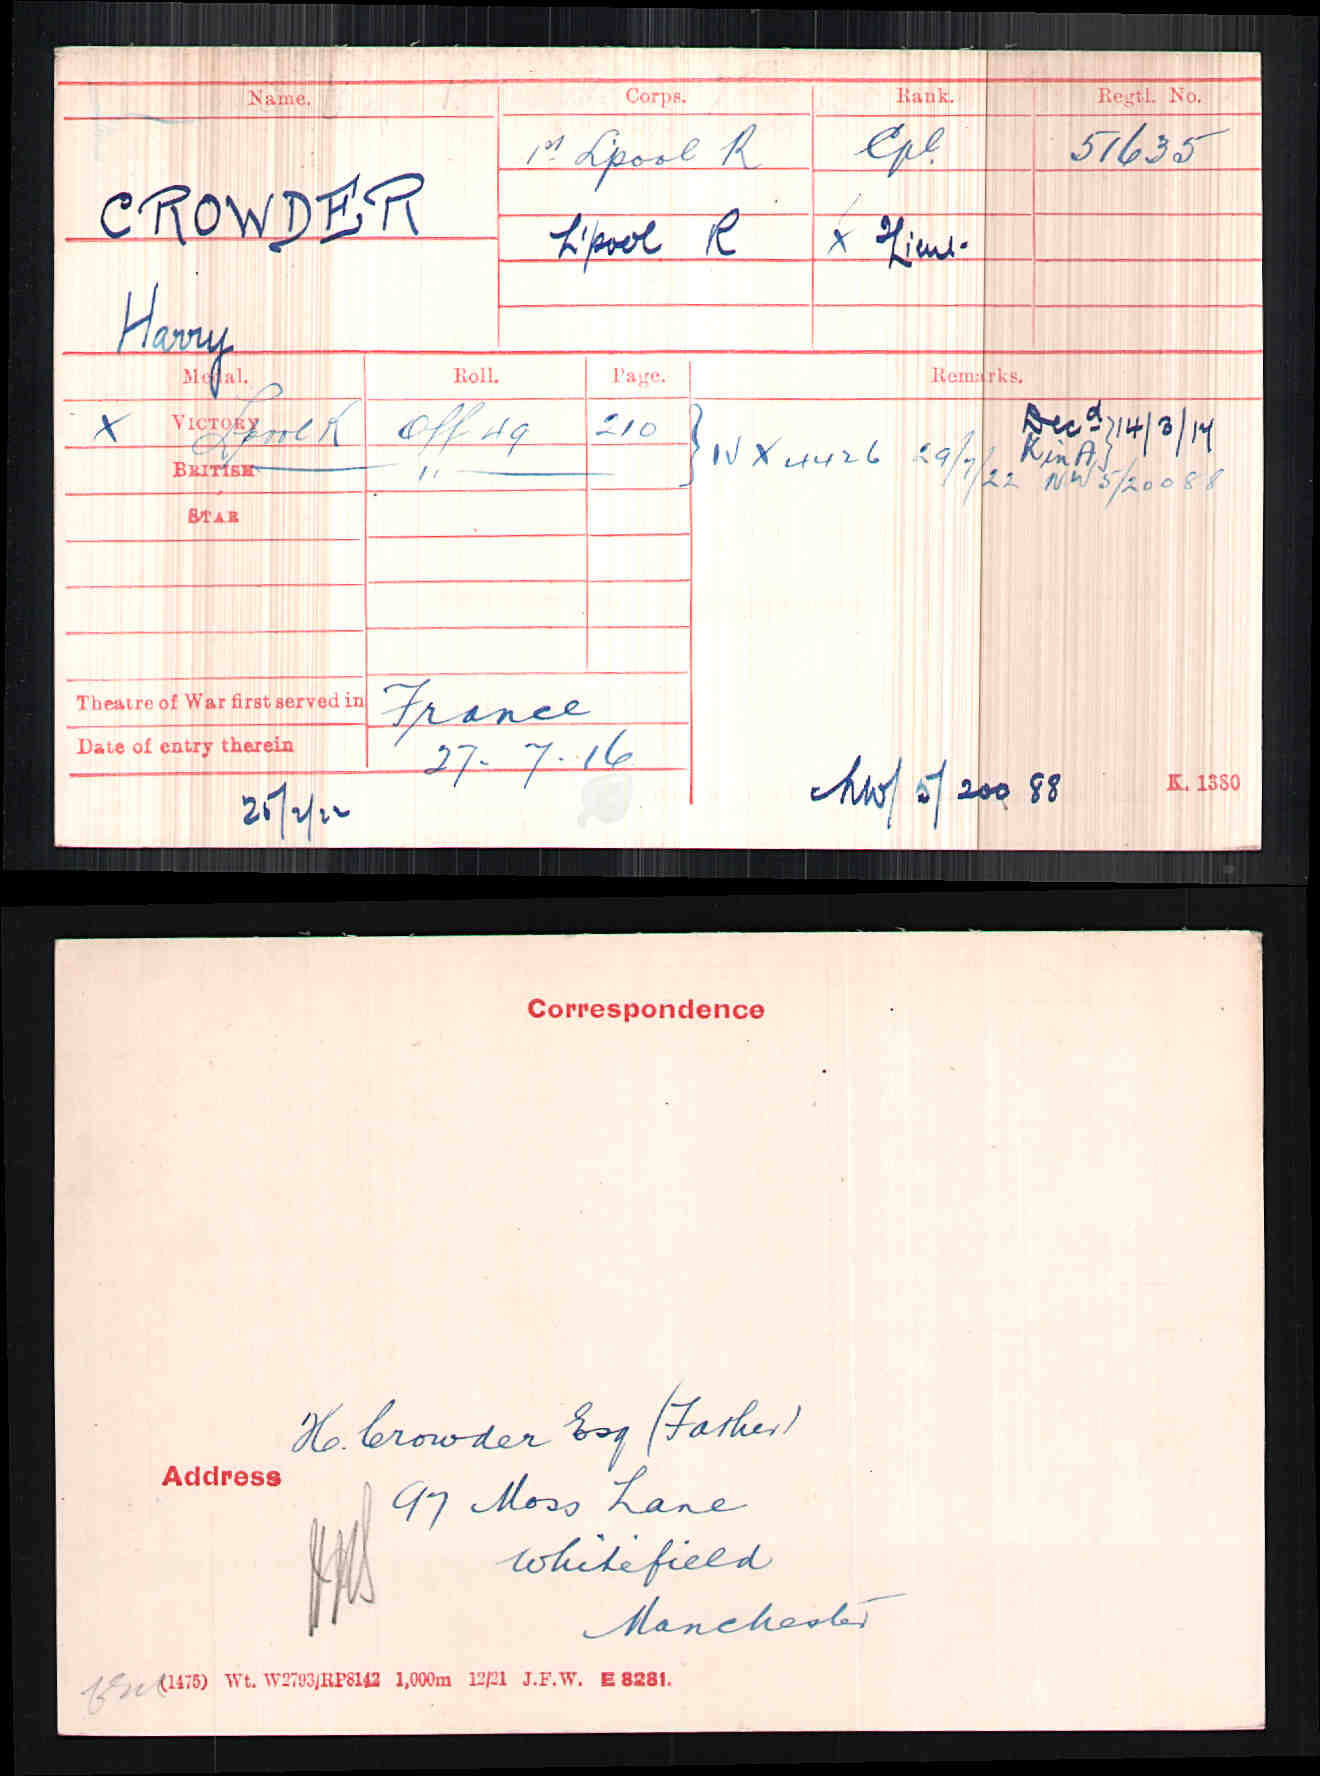 Name. Corps. Rank. Regtl. No.
1st L'pool R Cpl. 51635
CROWDER
L'pool R X Lieut.
Harry
Medal. Roll. Page. Remarks.
X VICTORY L'pool R Off 49 210 } IV X 4426 29/7/22 Decd } 14/3/17
BRITISH " K in A
NW 5/20088
STAR
Theatre of War first served in France
Date of entry therein 27-7-16
25/2/22 NW/5/20088 K. 1380
Correspondence
H. Crowder Esq (Father)
Address
97 Moss Lane
Whitefield
Manchester
(1475) Wt. W2793/RP8142 1,000m 12/21 J.F.W. E 8281.